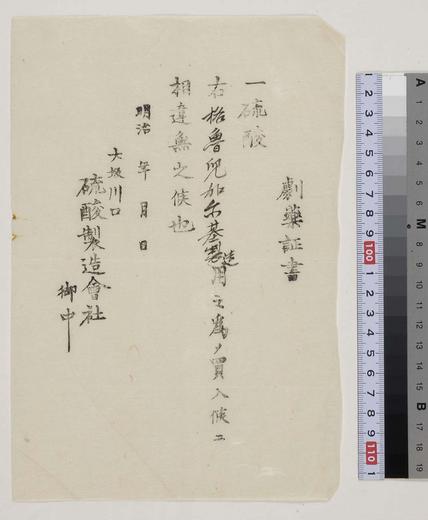 劇薬証書
一硫酸
右格魯兒加尓基製造用之為メ買入候ニ
相違無之候也
明治 年 月 日
大坂川口
硫酸製造會社
御中
1 2 3 4 5 6 7 8 9 100 1 2 3 4 5 6 7 8 9 110
A 1 2 3 4 5 6 M 8 9 10 11 12 13 14 15 B 17 18 19